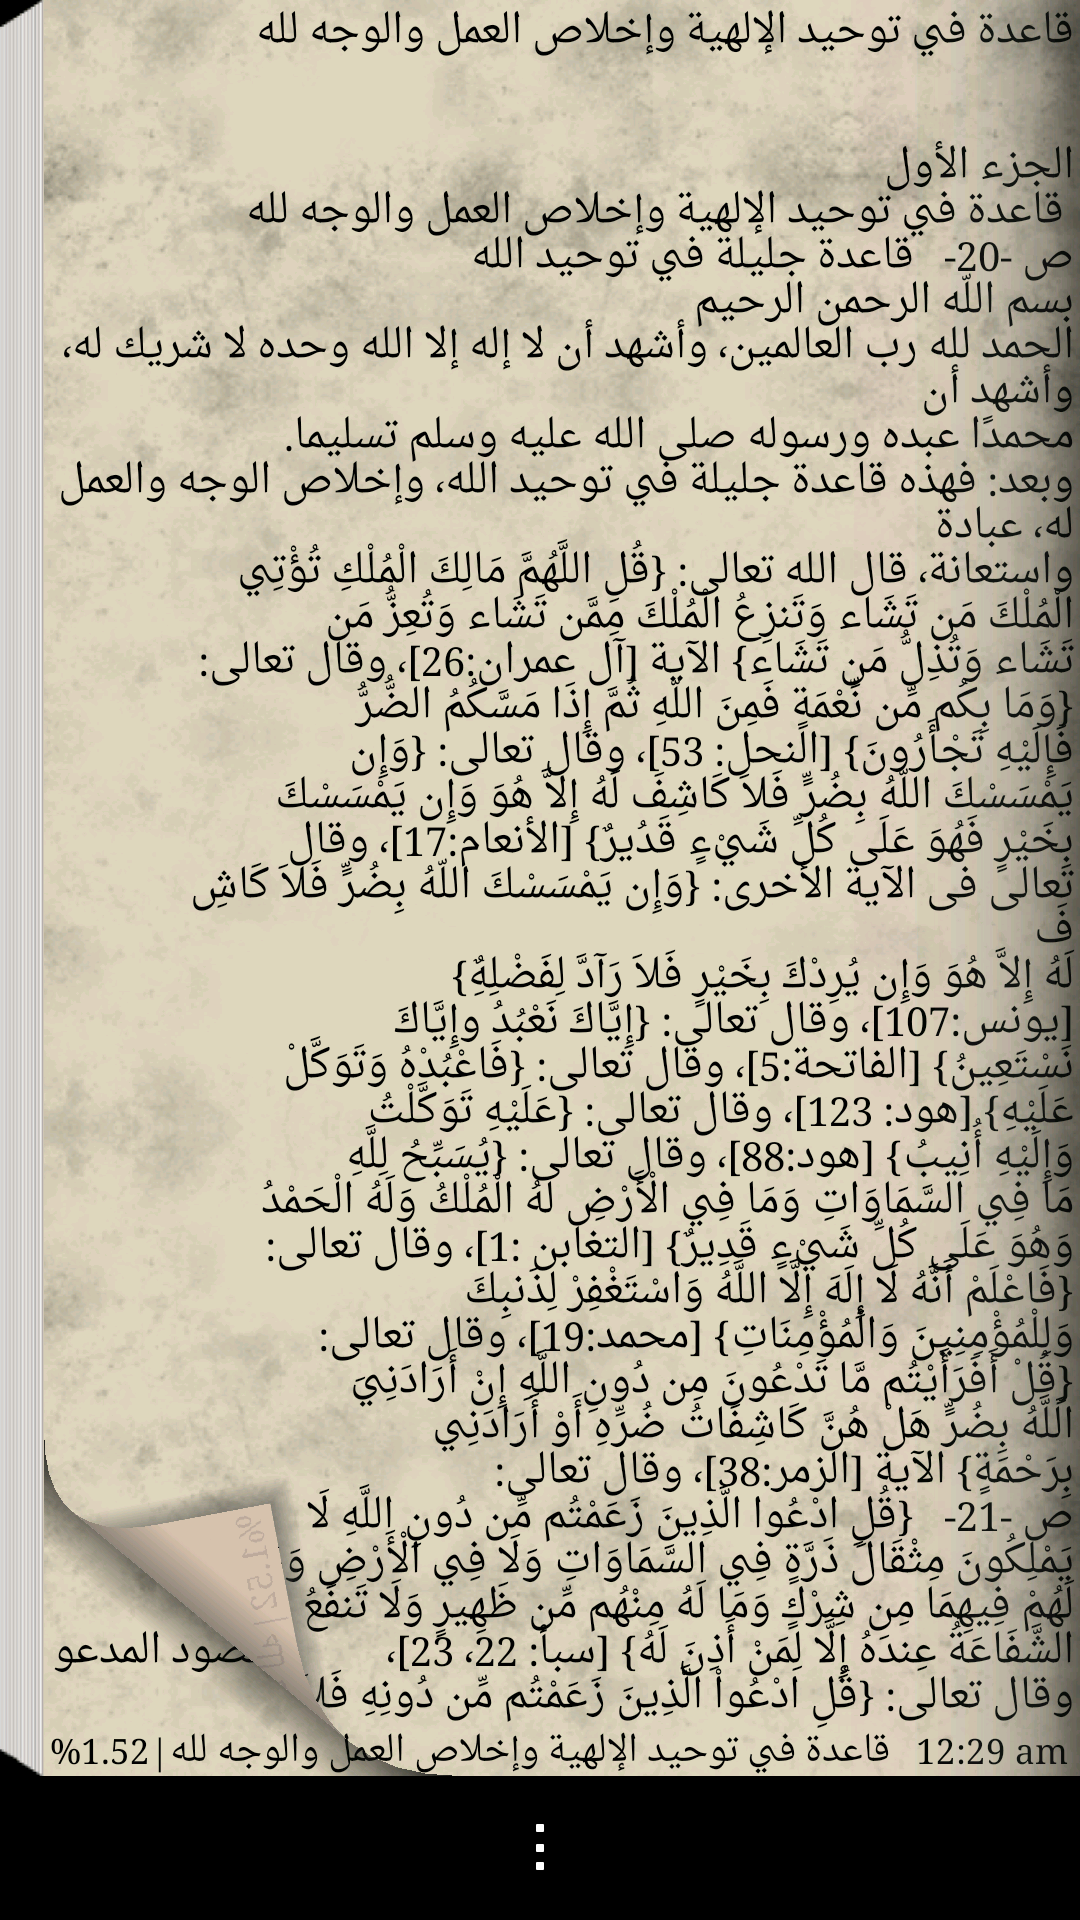 قاعدة في توحيد الإلهية وإخلاص العمل والوجه لله
الجزء الأول
قاعدة في توحيد الإلهية وإخلاص العمل والوجه لله
ص -20- قاعدة جليلة في توحيد الله
بسم اللّه الرحمن الرحيم
الحمد لله رب العالمين، وأشهد أن لا إله إلا الله وحده لا شريك له،
وأشهد أن
محمدًا عبده ورسوله صلى الله عليه وسلم تسليما.
وبعد: فهذه قاعدة جليلة في توحيد الله، وإخلاص الوجه والعمل
له، عبادة
واستعانة، قال الله تعالى: {قُلِ اللَّهُمَّ مَالِكَ الْمُلْكِ تُؤْتِي
الْمُلْكَ مَن تَشَاء وَتَنزِعُ الْمُلْكَ مِمَّن تَشَاء وَتُعِزُّ مَن
تَشَاء وَتُذِلُّ مَن تَشَاءَ} الآية [آل عمران:26]، وقال تعالى:
{وَمَا بِكُم مِّن نِّعْمَةٍ فَمِنَ اللّهِ ثُمَّ إِذَا مَسَّكُمُ الضُّرُّ
فَإِلَيْهِ تَجْأَرُونَ} [النحل: 53]، وقال تعالى: {وَإِن
يَمْسَسْكَ اللّهُ بِضُرٍّ فَلاَ كَاشِفَ لَهُ إِلاَّ هُوَ وَإِن يَمْسَسْكَ
بِخَيْرٍ فَهُوَ عَلَى كُلِّ شَيْءٍ قَدُيرٌ} [الأنعام:17]، وقال
تعالى فى الآية الأخرى: {وَإِن يَمْسَسْكَ اللّهُ بِضُرٍّ فَلاَ كَاشِ
فَ
لَهُ إِلاَّ هُوَ وَإِن يُرِدْكَ بِخَيْرٍ فَلاَ رَآدَّ لِفَضْلِهٌِ}
[يونس:107]، وقال تعالى: {إِيَّاكَ نَعْبُدُ وإِيَّاكَ
نَسْتَعِينُ} [الفاتحة:5]، وقال تعالى: {فَاعْبُدْهُ وَتَوَكَّلْ
عَلَيْهِ} [هود: 123]، وقال تعالى: {عَلَيْهِ تَوَكَّلْتُ
وَإِلَيْهِ أُنِيبُ} [هود:88]، وقال تعالى: {يُسَبِّحُ لِلَّهِ
مَا فِي السَّمَاوَاتِ وَمَا فِي الْأَرْضِ لَهُ الْمُلْكُ وَلَهُ الْحَمْدُ
وَهُوَ عَلَى كُلِّ شَيْءٍ قَدِيرٌ} [التغابن :1]، وقال تعالى:
{فَاعْلَمْ أَنَّهُ لَا إِلَهَ إِلَّا اللَّهُ وَاسْتَغْفِرْ لِذَنبِكَ
وَلِلْمُؤْمِنِينَ وَالْمُؤْمِنَاتِ} [محمد:19]، وقال تعالى:
{قُلْ أَفَرَأَيْتُم مَّا تَدْعُونَ مِن دُونِ اللَّهِ إِنْ أَرَادَنِيَ
اللَّهُ بِضُرٍّ هَلْ هُنَّ كَاشِفَاتُ ضُرِّهِ أَوْ أَرَادَنِي
بِرَحْمَةٍ} الآية [الزمر:38]، وقال تعالى:
ص -21- {قُلِ ادْعُوا الَّذِينَ زَعَمْتُم مِّن دُونِ اللَّهِ لَا
يَمْلِكُونَ مِثْقَالَ ذَرَّةٍ فِي السَّمَاوَاتِ وَلَا فِي الْأَرْضِ وَ
لَهُمْ فِيهِمَا مِن شِرْكٍ وَمَا لَهُ مِنْهُم مِّن ظَهِيرٍ وَلَا تَنفَعُ
الشَّفَاعَةُ عِندَهُ إِلَّا لِمَنْ أَذِنَ لَهُ} [سبأ: 22، 23]، المدعو
وقال تعالى: {قُلِ ادْعُواْ الَّذِينَ زَعَمْتُم مِّن دُونِهِ
12:29 am قاعدة في توحيد الإلهية وإخلاص العمل والوجه لله|1.52%